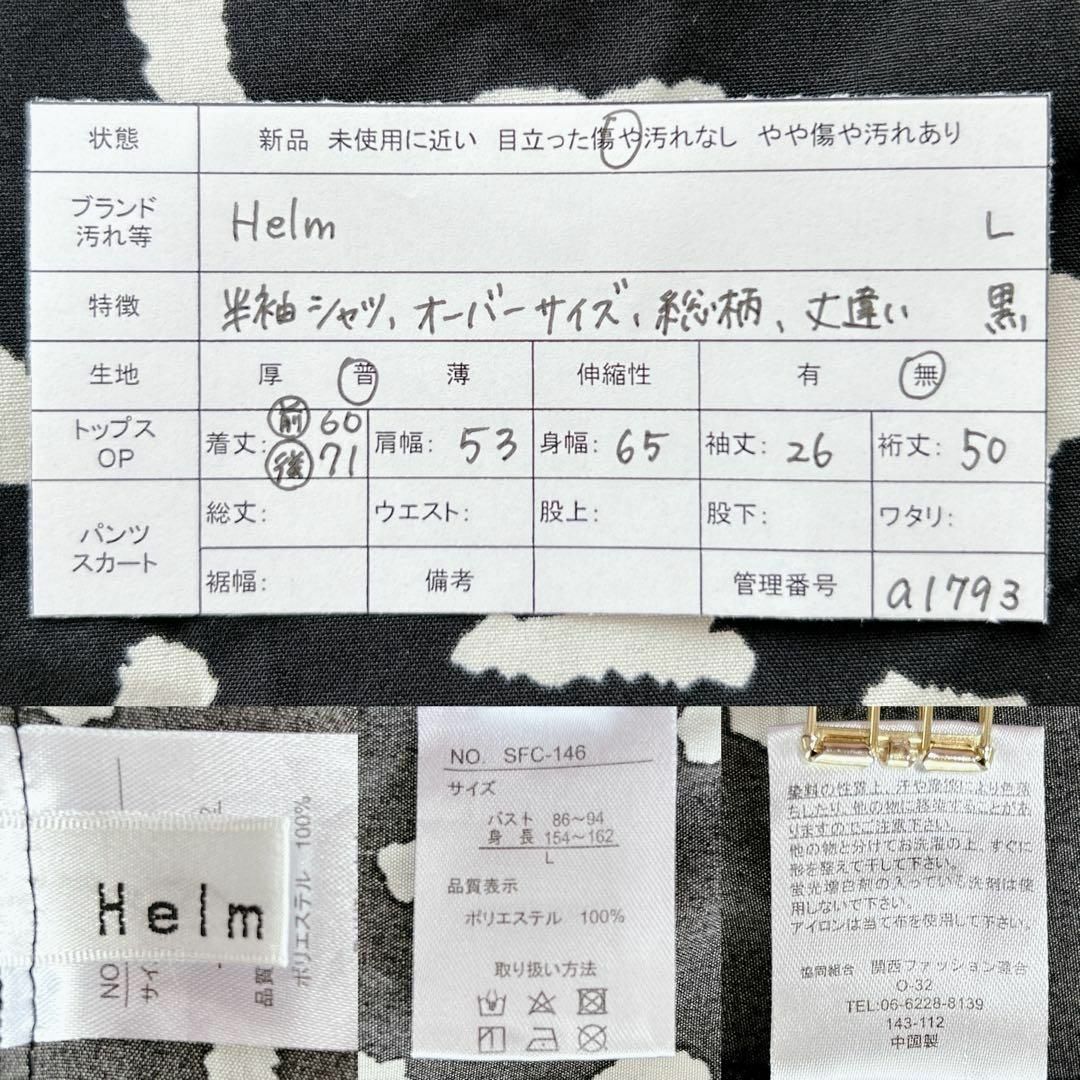 状態 新品 未使用に近い 目立った傷や汚れなし やや傷や汚れあり
ブランド
汚れ等 Helm L
特徴 半袖シャツ、オーバーサイズ、総柄、丈違い 黒
生地 厚 普 薄 伸縮性 有 無
トップス
OP 着丈: 前 60 後 71 肩幅: 53 身幅: 65 袖丈: 26 裄丈: 50
パンツ
スカート 総丈: ウエスト: 股上: 股下: ワタリ:
裾幅: 備考 管理番号 a1793
Helm
NO
サイ
品質
ポリエステル 100%
NO. SFC-146
サイズ
バスト 86～94
身長 154～162
L
品質表示
ポリエステル 100%
取り扱い方法
染料の性質上、汗や摩擦により色落
ちしたり、他の物に移染することがあ
りますのでご注意下さい。
他の物と分けてお洗濯の上、すぐに
形を整えて干して下さい。
蛍光増白剤の入っている洗剤は使
用しないで下さい。
アイロンは当て布を使用して下さい。
協同組合 関西ファッション連合
O-32
TEL:06-6228-8139
143-112
中国製